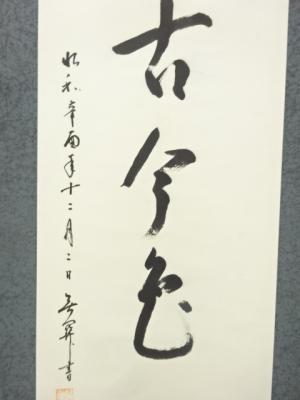 古今色
昭和辛酉年十二月二日 書